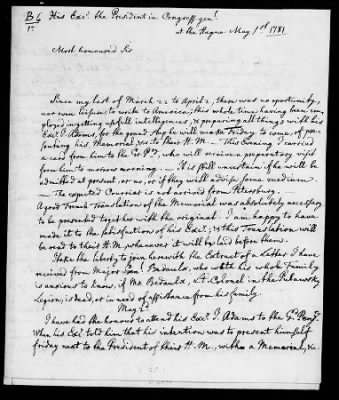 B 6
pr
His Exc.y the President in Congress gen.l
at the Hague May 1st 1781
Most honoured Sir
Since my last of March 22 to April 2, there was no oportunity,
nor own leisure, to write to America; this whole time having been em-
ployed in getting usefull intelligences, & preparing all things with his
Exc.y J. Adams, for the grand step he will make Friday to come, of pre-
senting his Memorial &c to their H. M. — This evening I carried
a card from him to the G. P., who will receive preparatory visit
from him to morrow morning. — It is still uncertain, if he will be
admitted at present, or no, or if they will advise some medium.
The expected Courier is not arrived from Petersburg.
A good French Translation of the Memorial was absolutely necessary
to be presented together with the original. I am happy to have
made it to the satisfaction of his Exc.y; & this Translation will
be read to their H. M. whenever it will be laid before them.
I take the liberty to join here with the Extract of a Letter I have
received from Major Bedaulx, who with his whole Family
is anxious to know, if Mr Bedaulx, Lt. Colonel in the Pulawsky
Legion, is dead, or in need of assistance from his family.
May 2.d
I have had the honour to attend his Exc.y J. Adams to the Gd. Pens.y
when his Exc.y told him that his intention was to present himself
friday next to the President of their H. M., with a Memorial, &c.